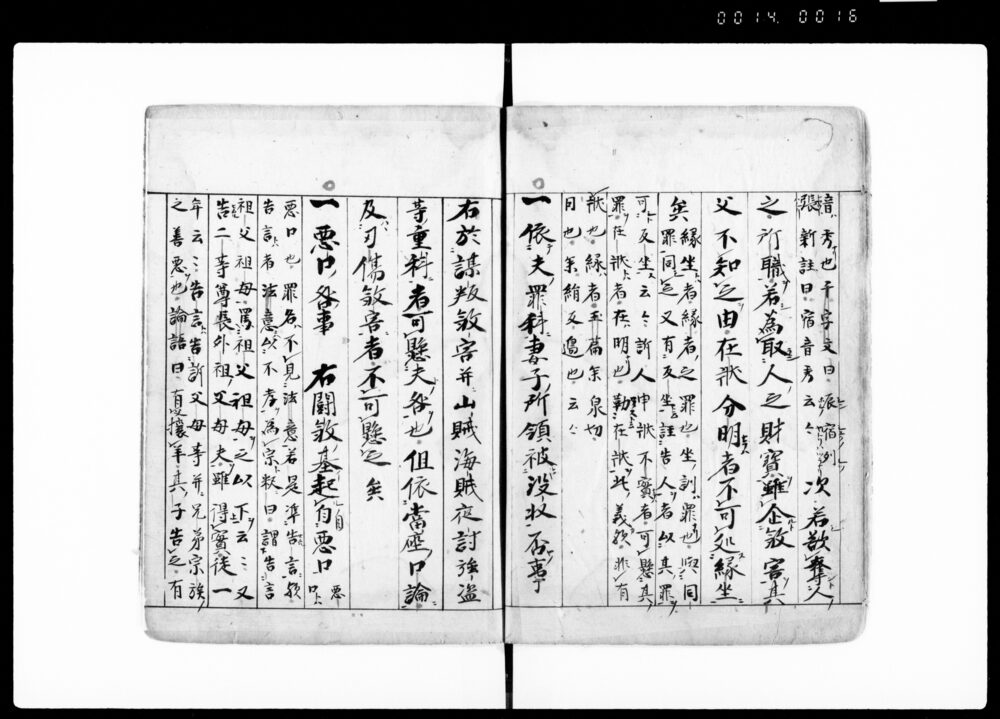 0014.0016
音秀也千字文曰振宿列
張新註曰宿音秀云々
次若欲奪人
之所職若為取人之財寳雖企殺害其
父不知之由在状分明者不可処縁坐
矣
縁坐者縁者之罪也坐訓罪也與同
罪同之又有反坐註告人者以其罪
可反坐云々訴人申状不實者可懸其
罪在状者在明也勒在状此義欤非有
状也縁者玉篇余泉切
因也
一依夫罪科妻子所領被没收否事
右於謀叛殺害并山賊海賊夜討強盗
等重科者可懸夫咎也但依當座口論
及刃傷殺害者不可懸之矣
一悪口咎事 右闘殺基起自悪口
悪口也罪名不見法意若是準告言欤
告言者法意以不孝為宗釈曰謂告言
祖父祖母罵祖父祖母之以下云々又
告二等尊長外祖父母夫雖得實徒一
年云々告言告訴父母等并兄弟宗族
之善悪也論語曰有攘羊其子告之有